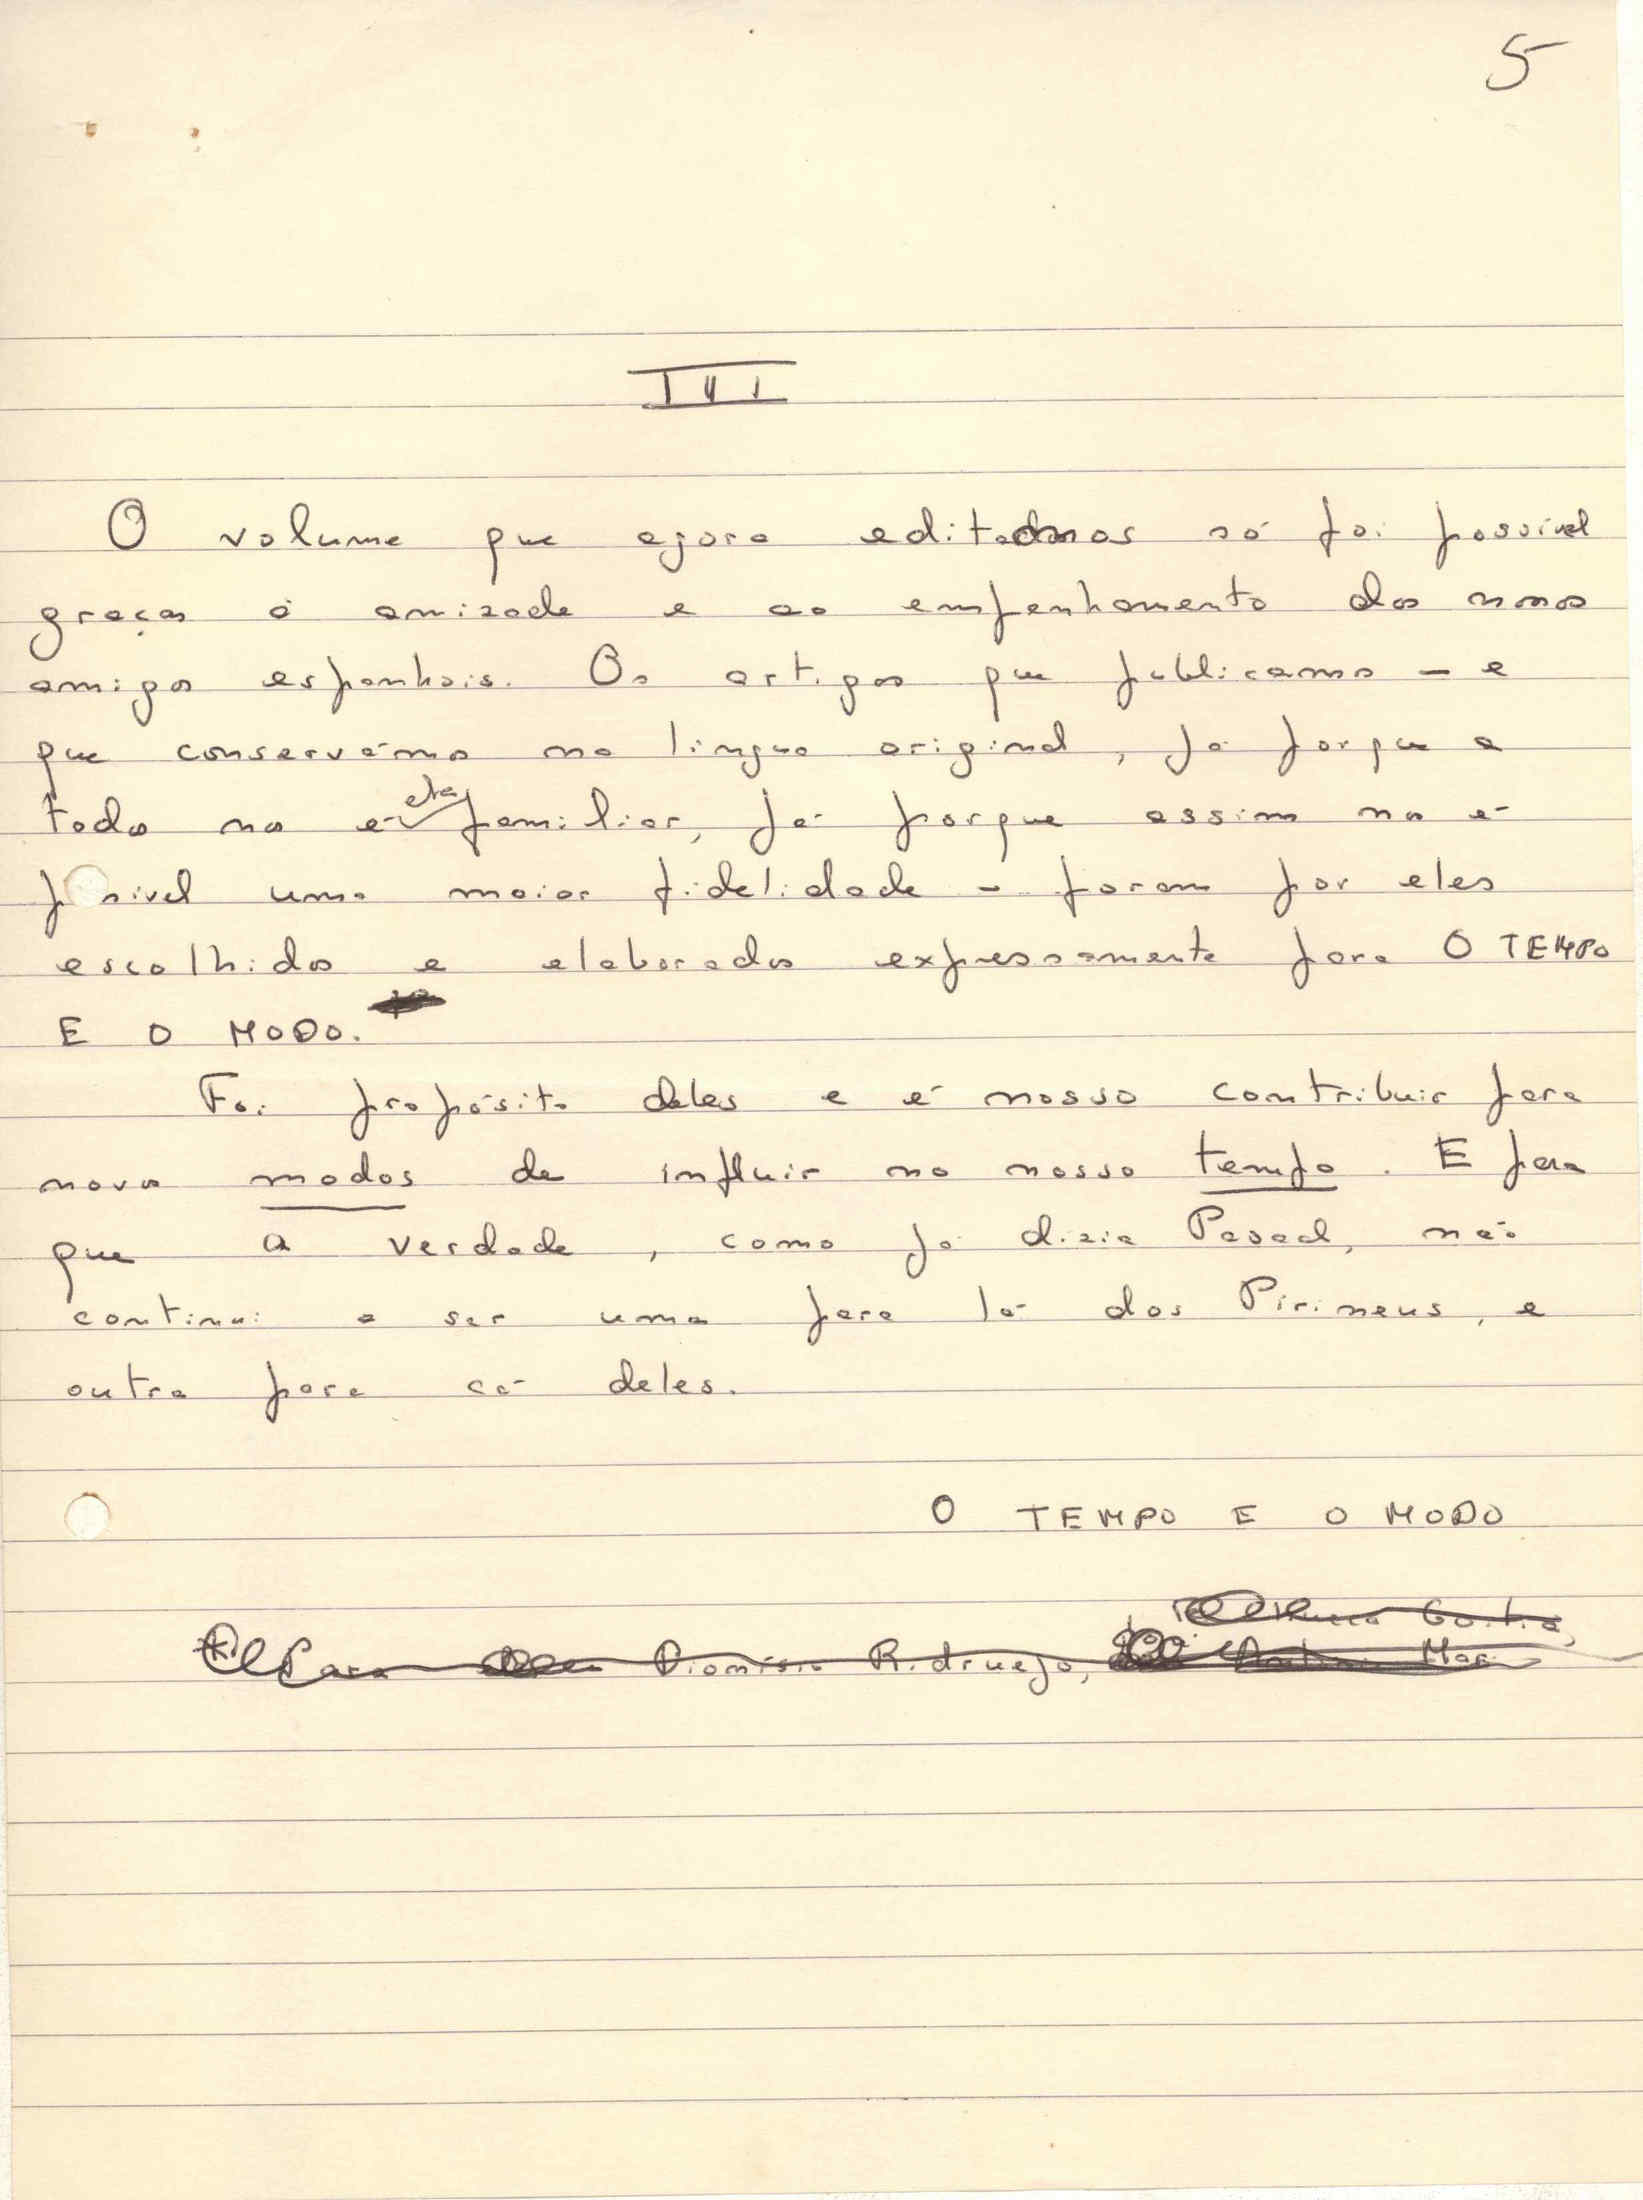 5
III
O volume que agora editamos só foi possível
graças à amizade e ao empenhamento dos nossos
amigos espanhois. Os artigos que publicamos - e
que conservámos na língua original, já porque a
todos nos é ela familiar, já porque assim nos é
possivel uma maior fidelidade - foram por eles
escolhidos e elaborados expressamente para O TEMPO
E O MODO.
Foi propósito deles e é nosso contribuir para
novos modos de influir no nosso tempo. E para
que a verdade, como já dizia Pascal, não
continui a ser uma para lá dos Pirineus, e
outra para cá deles.
O TEMPO E O MODO
Para Dionísio Ridruejo,